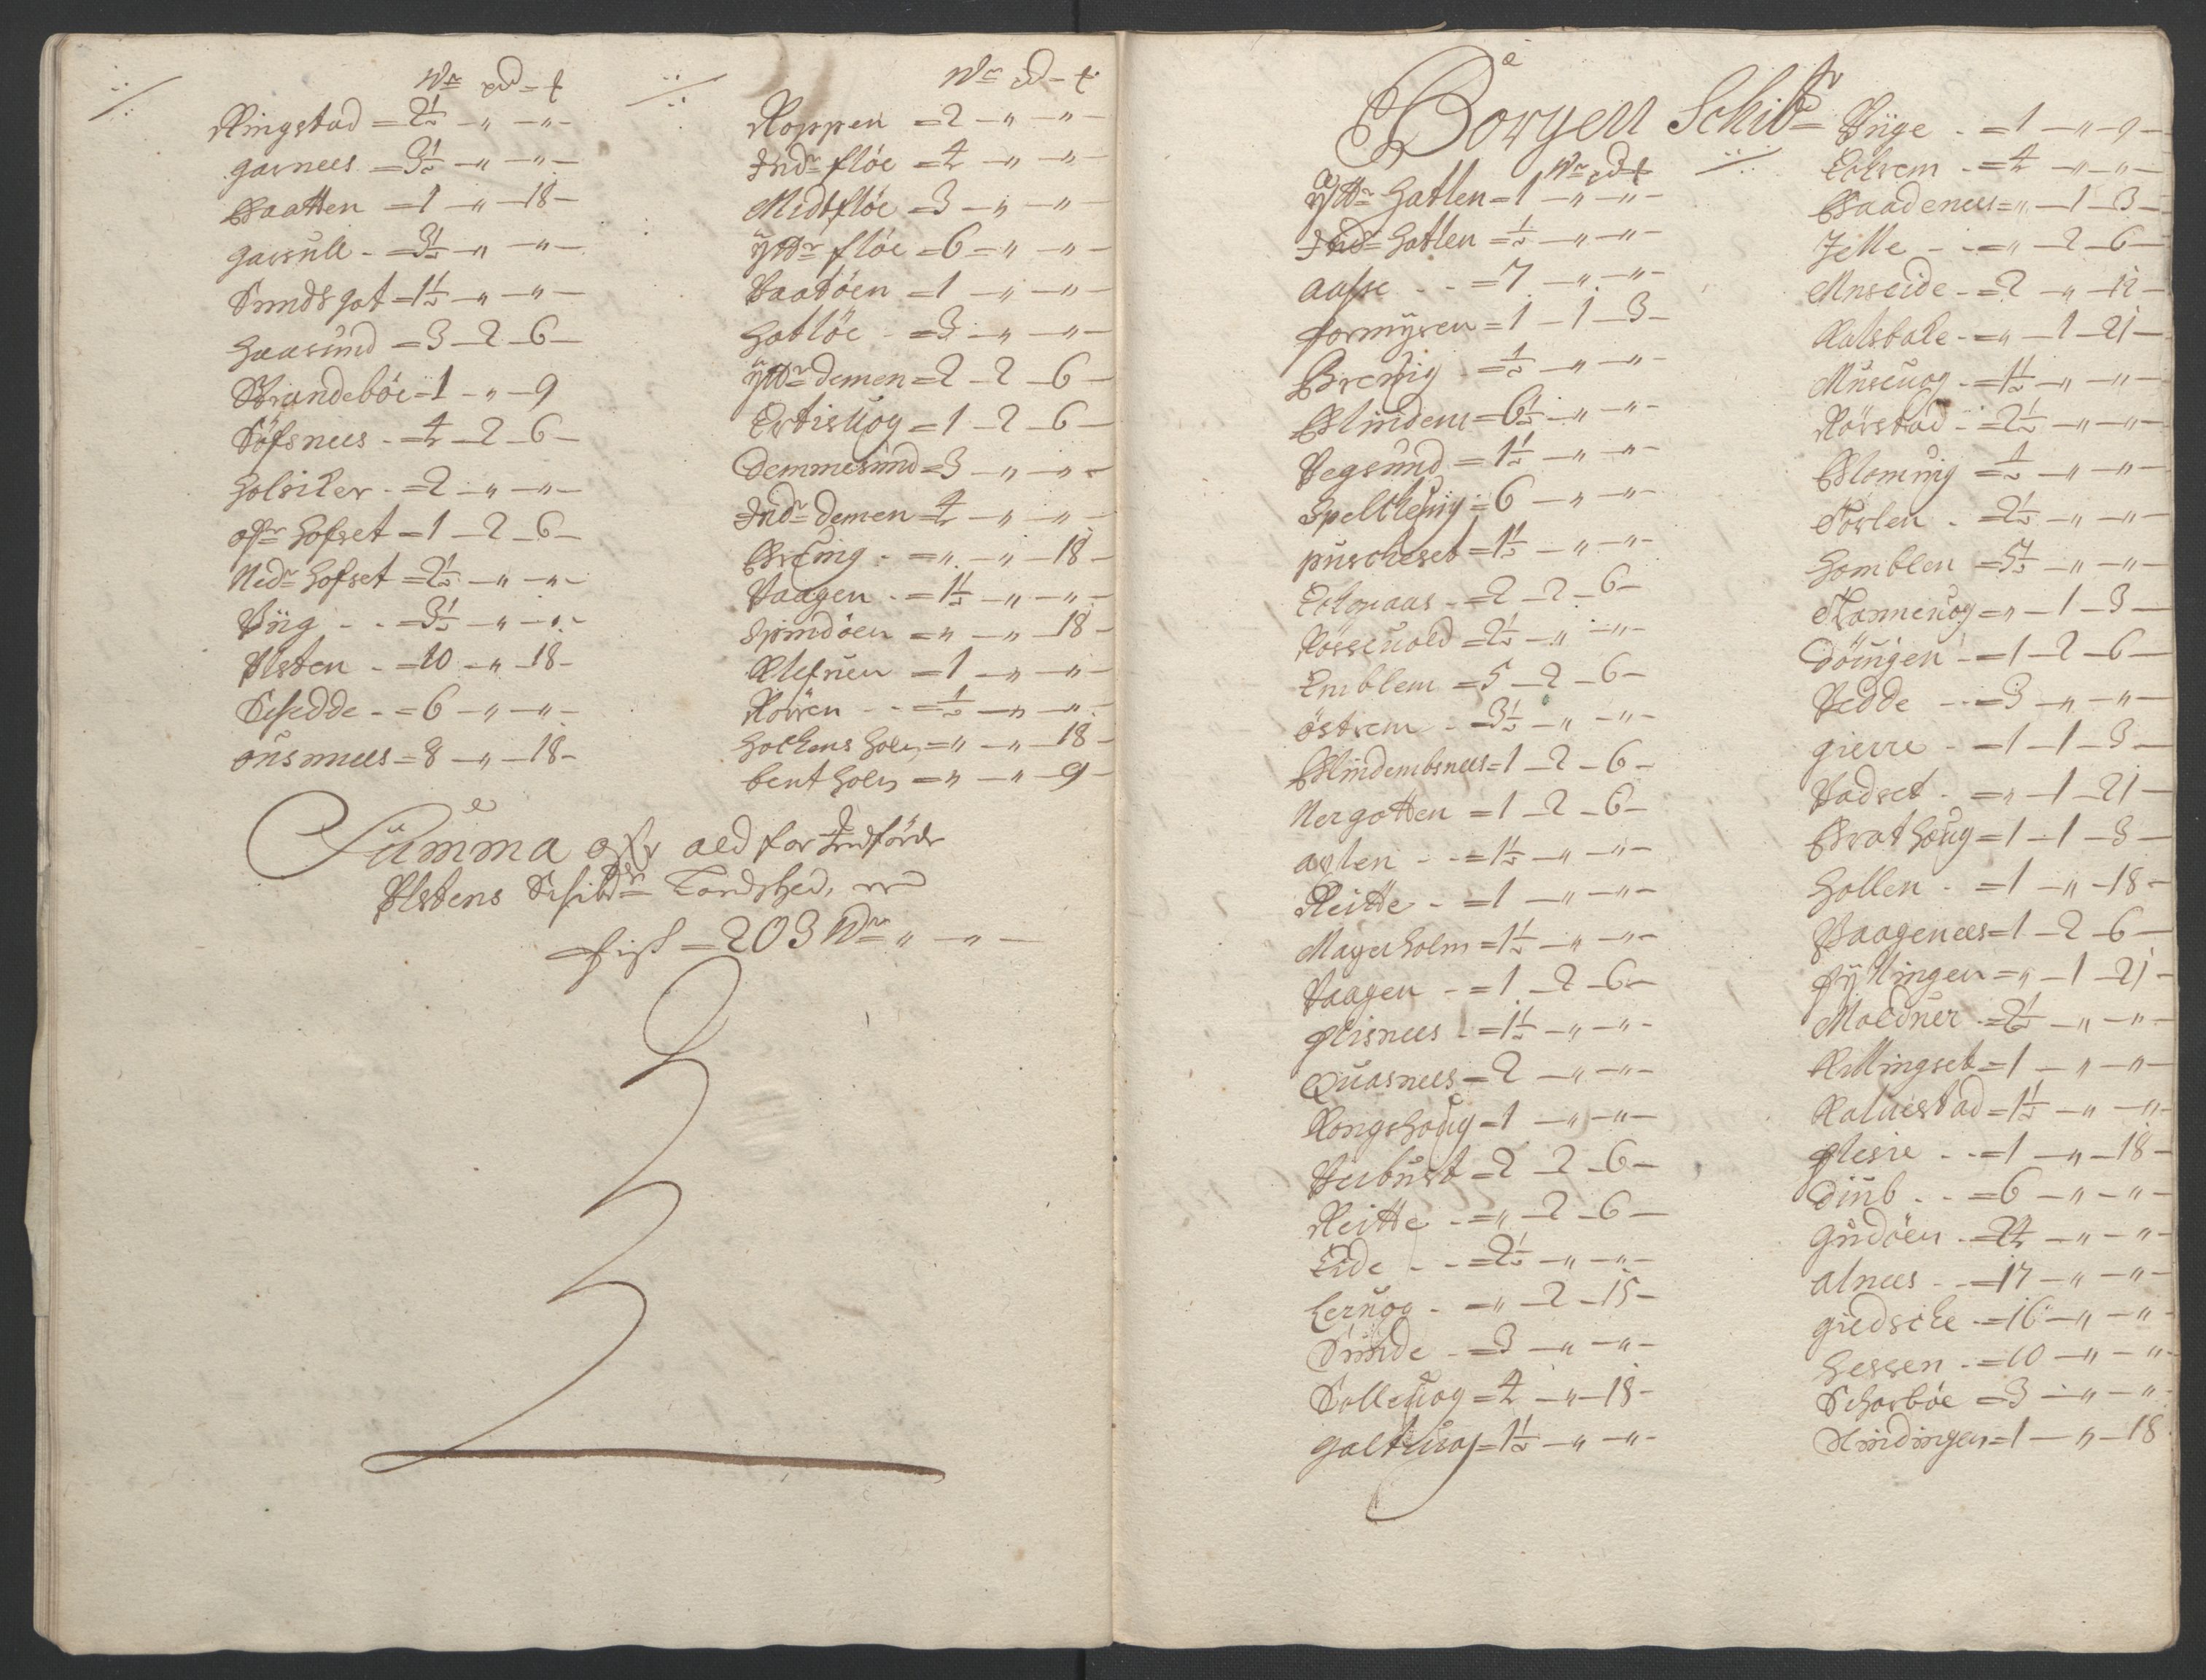 Wr pd – ℔
Ringstad = 2½ – „ – „ –
Garnees = 3½ – „ – „ –
Baatten = 1 – „ – 18 –
Garsull - = 3½ – „ – „ –
Sundsgat = 1½ – „ – „ –
Haasund = 3 – 2 – 6 –
Strandebøe = 1 – „ – 9
Søfsnees - = 4 – 2 – 6 –
Holsiker - = 2 – „ – „ –
ofr Hofset = 1 – 2 – 6 –
Nedr Hofset = 2½ – „ – „ –
Viig - - = 3½ – „ – „ –
Ulsten - = 10 – „ – 18 –
Schedde - = 6 – „ – „ –
ousnnees = 8 – „ – 18 –
Wr pd – ℔
Roppen = 2 – „ – „ –
Indr fløe = 4 – „ – „ –
Midtfløe = 3 – „ – „ –
Ÿttr fløe = 6 – „ – „ –
Vaatøen = 1 – „ – „ –
Hatløe - = 3 – „ – „ –
Ÿttr demen = 2 – 2 – 6 –
Ertisuog = 1 – 2 – 6 –
Demmesund = 3 – „ – „ –
Indr demen = 4 – „ – „ –
Breuig - = „ – „ – 18 –
Vaagen - = 1½ – „ – „ –
Spindøen = „ – „ – 18 –
Klefuen = 1 – „ – „ –
Røren - - = ½ – „ – „ –
Hockens Holm = „ – „ – 18 –
bent Holm = „ – „ – 9 –
Summa ofr ald for Indførdr
Ulstens Schibdr Landshed, er
fisk = 203 Wr „ – „ –
Borgen Schibr
Wr pd ℔
Ÿttr Hatlen = 1 – „ – „ –
Indr Hatlen = ½ – „ – „ –
Aasse - - = 7 – „ – „ –
formyren = 1 – 1 – 3 –
Breuig - = ½ – „ – „ –
Blindem = 6½ – „ – „ –
Vegsund = 1½ – „ – „ –
Speltheuig = 6 – „ – „ –
puscheset = 1½ – „ – „ –
Echonaas - = 2 – 2 – 6 –
Røsseuold = 2½ – „ – „ –
Emblem = 5 – 2 – 6 –
østrem - = 3½ – „ – „ –
Blindembsnees = 1 – 2 – 6 –
Nergotten = 1 – 2 – 6 –
aylen - - = 1½ – „ – „ –
Reitte - = 1 – „ – „ –
Mager Holm = 1½ – „ – „ –
Vaagen - = 1 – 2 – 6 –
flisnees - = 1½ – „ – „ –
Quasnees = 2 – „ – „ –
Kongshoug = 1 – „ – „ –
Verbust = 2 – 2 – 6 –
Reitte - = „ – 2 – 6 –
Eide - - = 2½ – „ – „ –
Leruog - = „ – 2 – 15 –
Sunde - = 3 – „ – „ –
Solleuog = 4 – „ – 18 –
Galtuog = 1½ – „ – „ –
Viige - = 1 – „ – 9 –
Eckrem - = 4 – „ – „ –
Baadenees = „ – 1 – 3 –
Jelle - - = „ – 2 – 6 –
Mnseide - = 2 – „ – 12 –
Kalsbake - = „ – 1 – 21 –
Museuog - = 1½ – „ – „ –
Rørstad - = 2½ – „ – „ –
Blomuig = ½ – „ – „ –
Tørlen - = 2½ – „ – „ –
Homblen = 5½ – „ – „ –
Tanneuog = „ – 1 – 3 –
Døuingen - = 1 – 2 – 6 –
Vedde - - = 3 – „ – „ –
Gierre - = 1 – 1 – 3 –
Vadset - = „ – 1 – 21 –
Brathoug = 1 – 1 – 3 –
Hollen - = 1 – „ – 18 –
Vaagenees = 1 – 2 – 6 –
fyllingen = „ – 1 – 21 –
Moldner - = 2½ – „ – „ –
Killingset = 1 – „ – „ –
Kaluestad = 1½ – „ – „ –
flesie - - = 1 – „ – 18 –
Diub - - = 6 – „ – „ –
Gudøen - = 24 – „ – „ –
Alnees - - = 17 – „ – „ –
Giedscke - = 16 – „ – „ –
Hessen - = 10 – „ – „ –
Scharbøe = 3 – „ – „ –
Slindingen = 1 – „ – 18